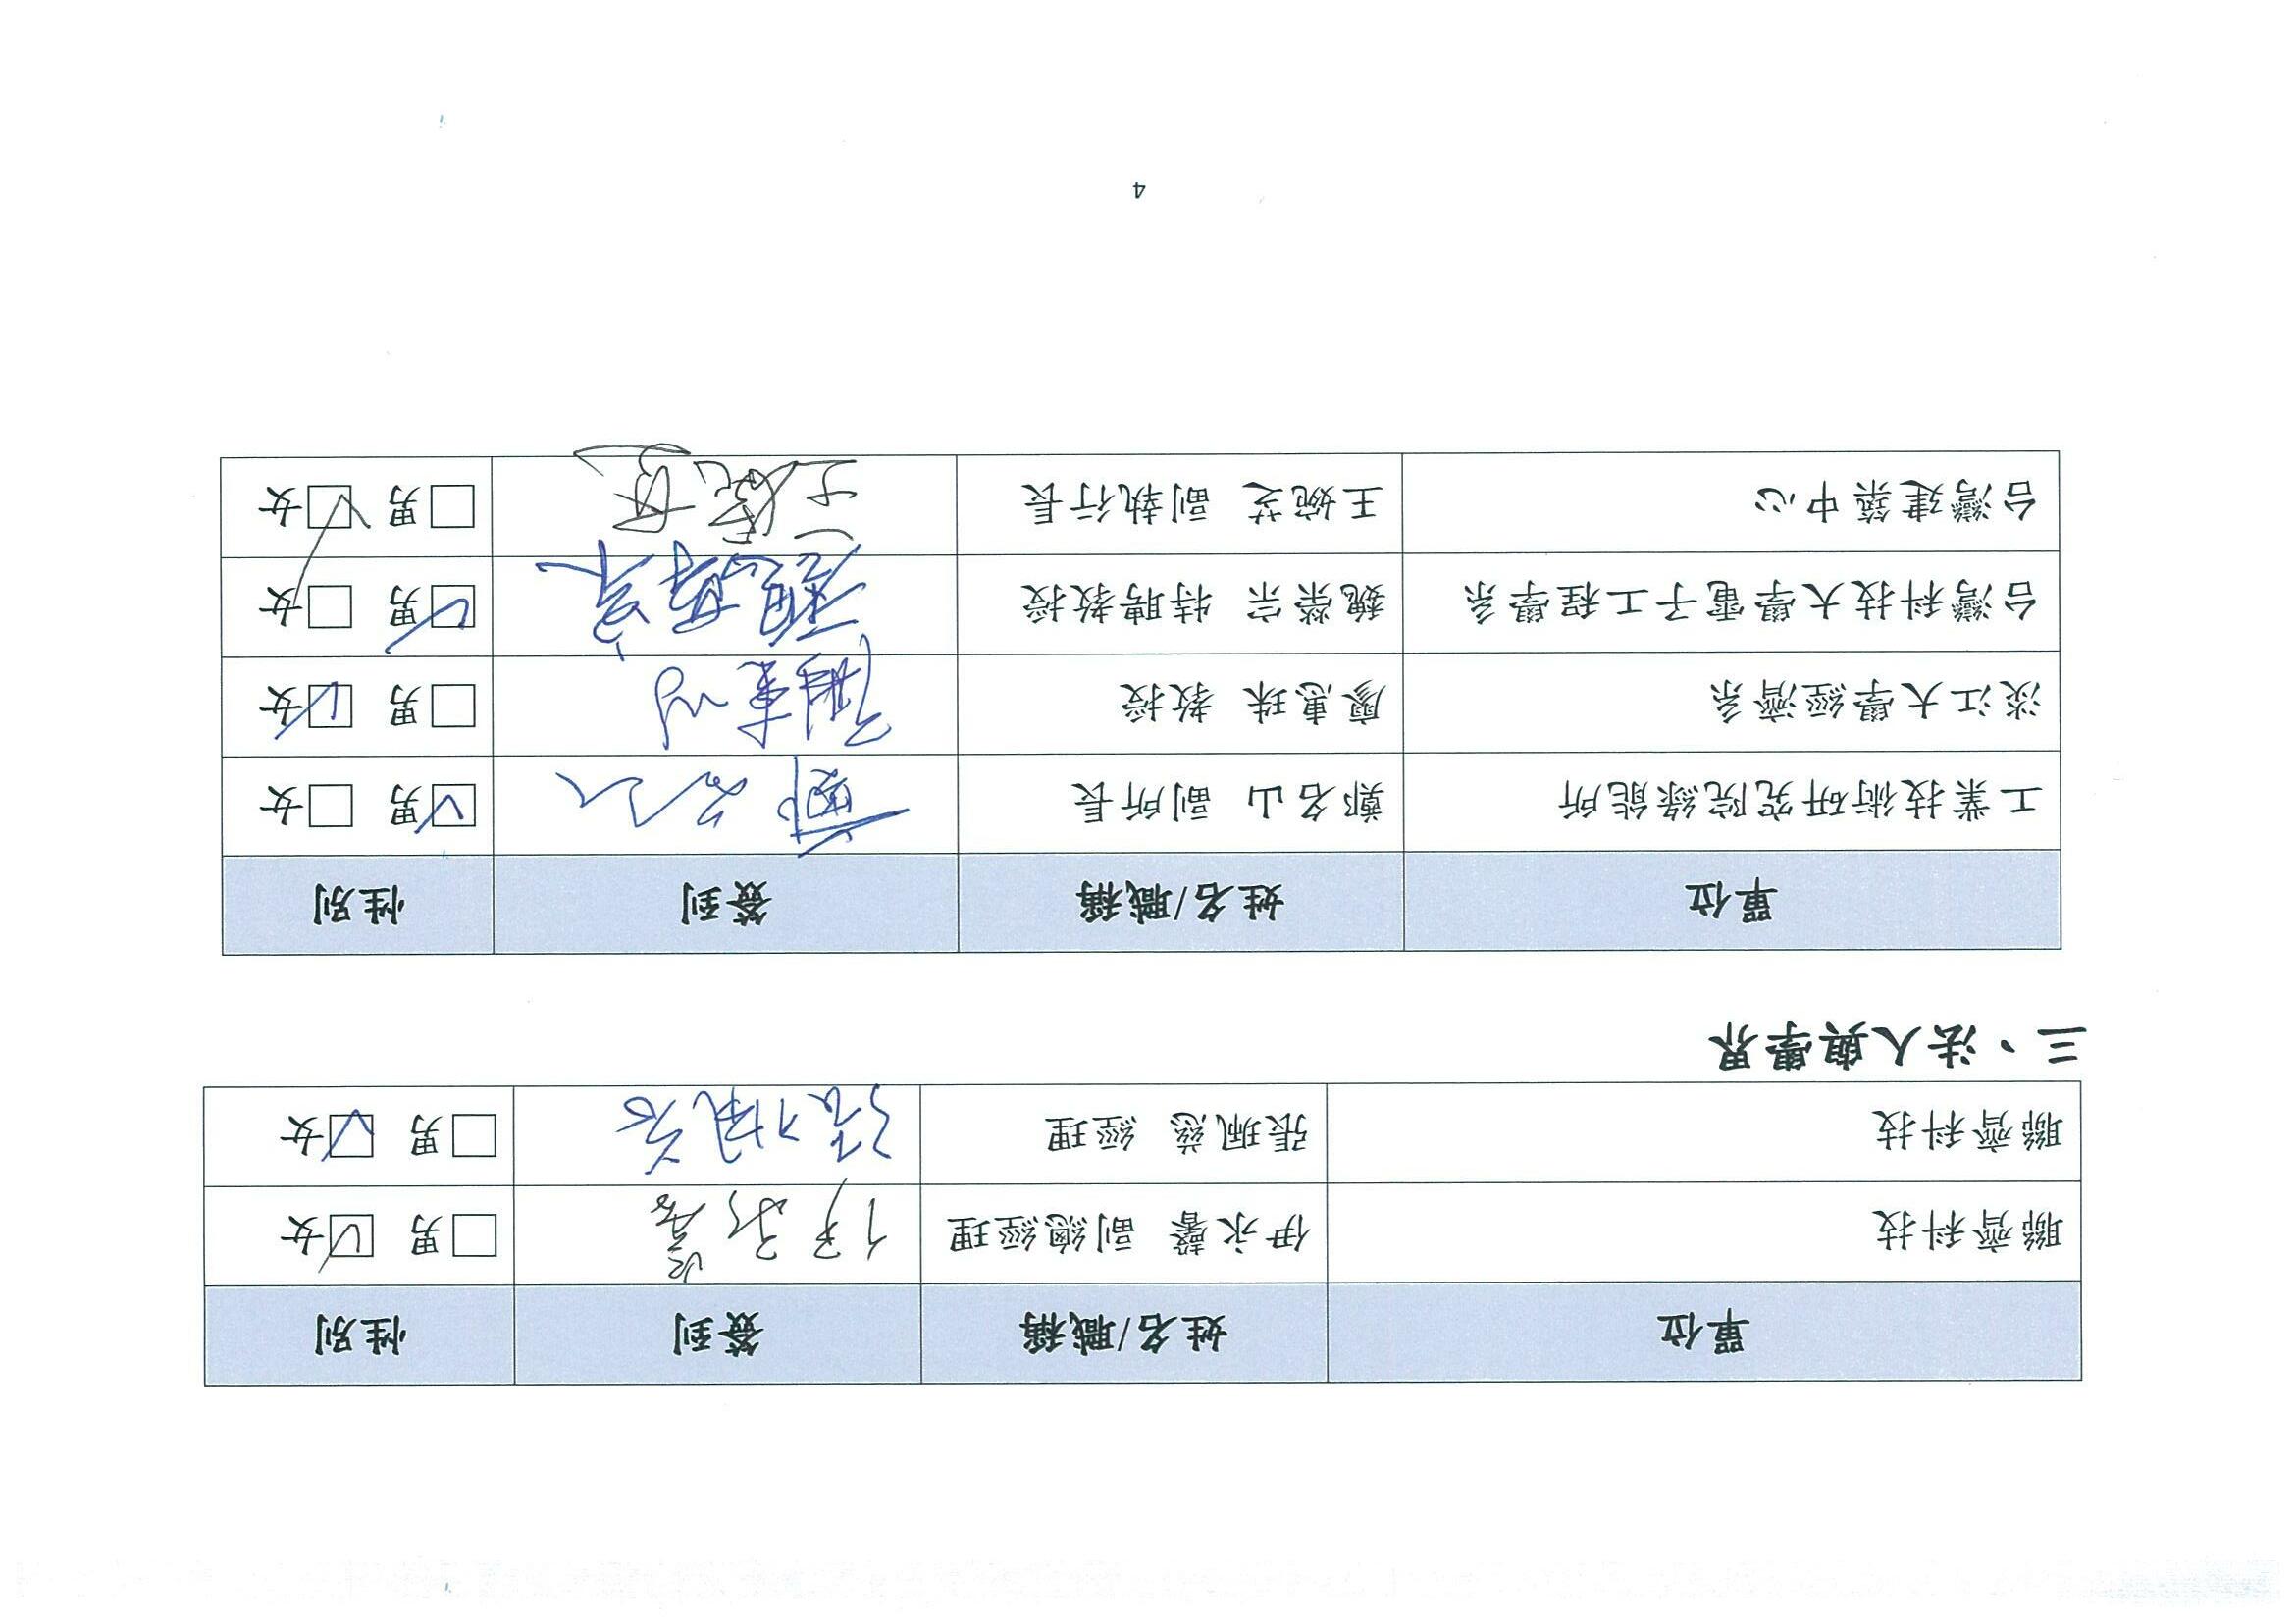 單位 姓名/職稱 簽到 性別
聯齊科技 伊永馨 副總經理 伊永馨 □男 ☑女
聯齊科技 張珮慈 經理 張珮慈 □男 ☑女
三、法人與學界
單位 姓名/職稱 簽到 性別
工業技術研究院綠能所 鄭名山 副所長 鄭名山 ☑男 □女
淡江大學經濟系 廖惠珠 教授 □男 ☑女
台灣科技大學電子工程學系 魏榮宗 特聘教授 魏榮宗 ☑男 □女
台灣建築中心 王婉芝 副執行長 □男 ☑女
4